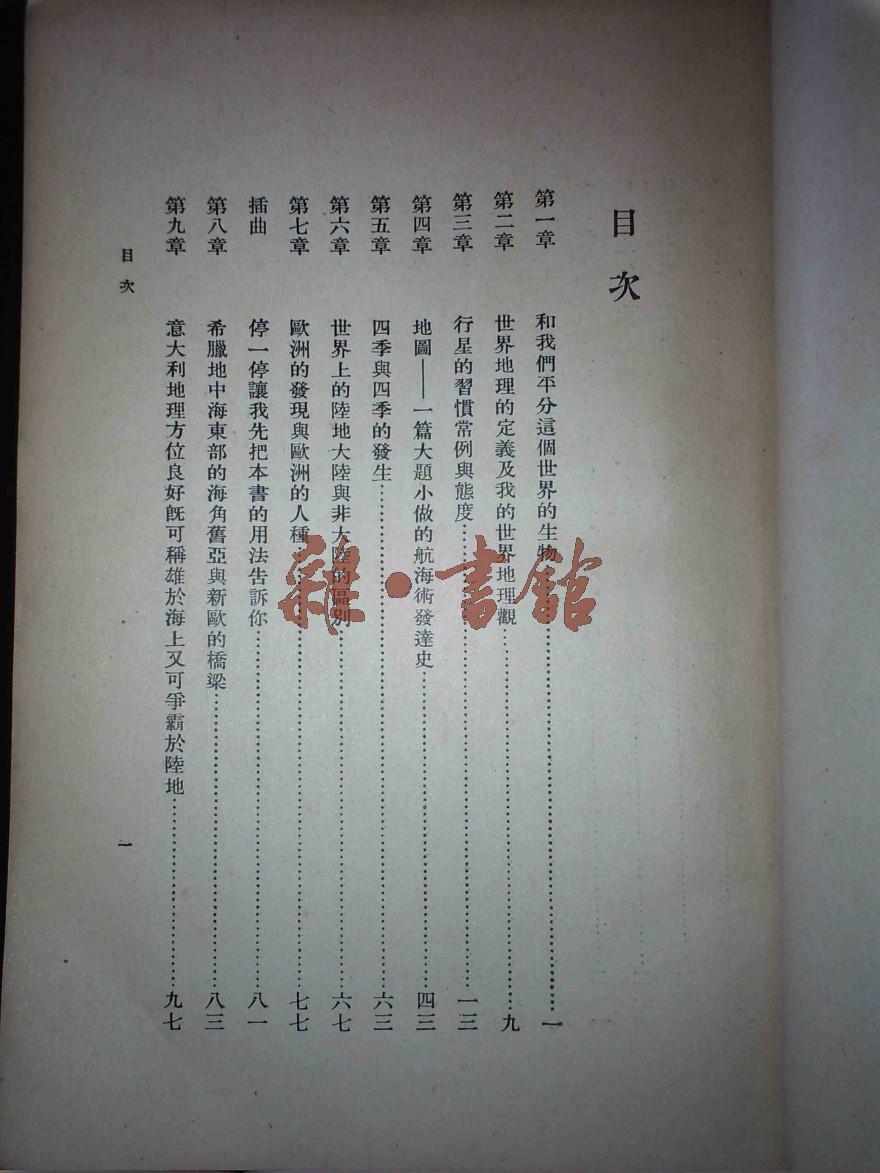 目次
第一章 和我們平分這個世界的生物……一
第二章 世界地理的定義及我的世界地理觀……九
第三章 行星的習慣常例與態度……一三
第四章 地圖——一篇大題小做的航海術發達史……四三
第五章 四季與四季的發生……六三
第六章 世界上的陸地大陸與非大陸的區別……六七
第七章 歐洲的發現與歐洲的人種……七七
插曲 停一停讓我先把本書的用法告訴你……八一
第八章 希臘地中海東部的海角舊亞與新歐的橋梁……八三
第九章 意大利地理方位良好旣可稱雄於海上又可爭霸於陸地……九七
目次 一
雜·書館